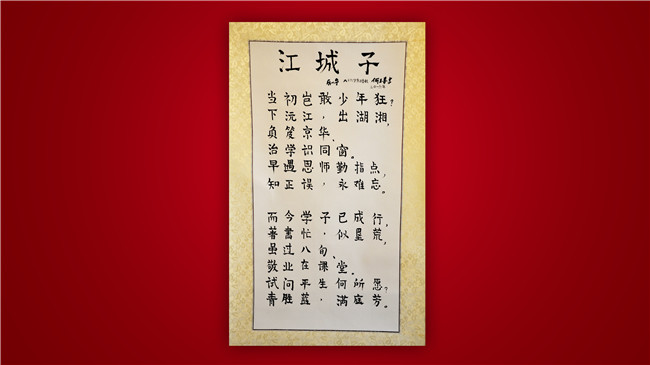 江城子
当初岂敢少年狂?
下沅江,出湖湘,
负笈京华、
治学识同窗。
早遇恩师勤指点,
知正误,永难忘。
而今学子已成行。
著書忙,似垦荒,
虽过八旬、
敬业在课堂。
试问平生何所愿?
青胜蓝,满庭芳。